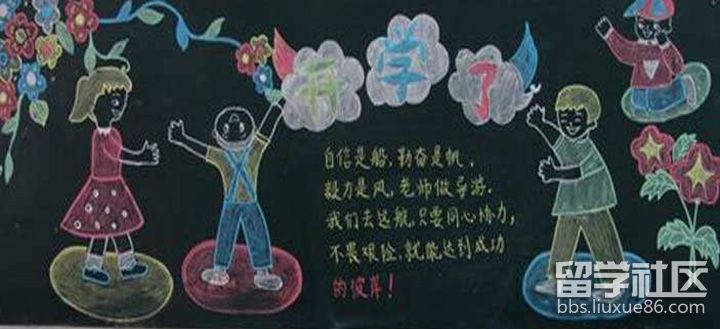 开学了
自信是船,勤奋是帆,
毅力是风,老师做导游.
我们去远航,只要同心协力,
不畏艰险,就能达到成功
的彼岸!
留学社区
bbs.liuxue86.com